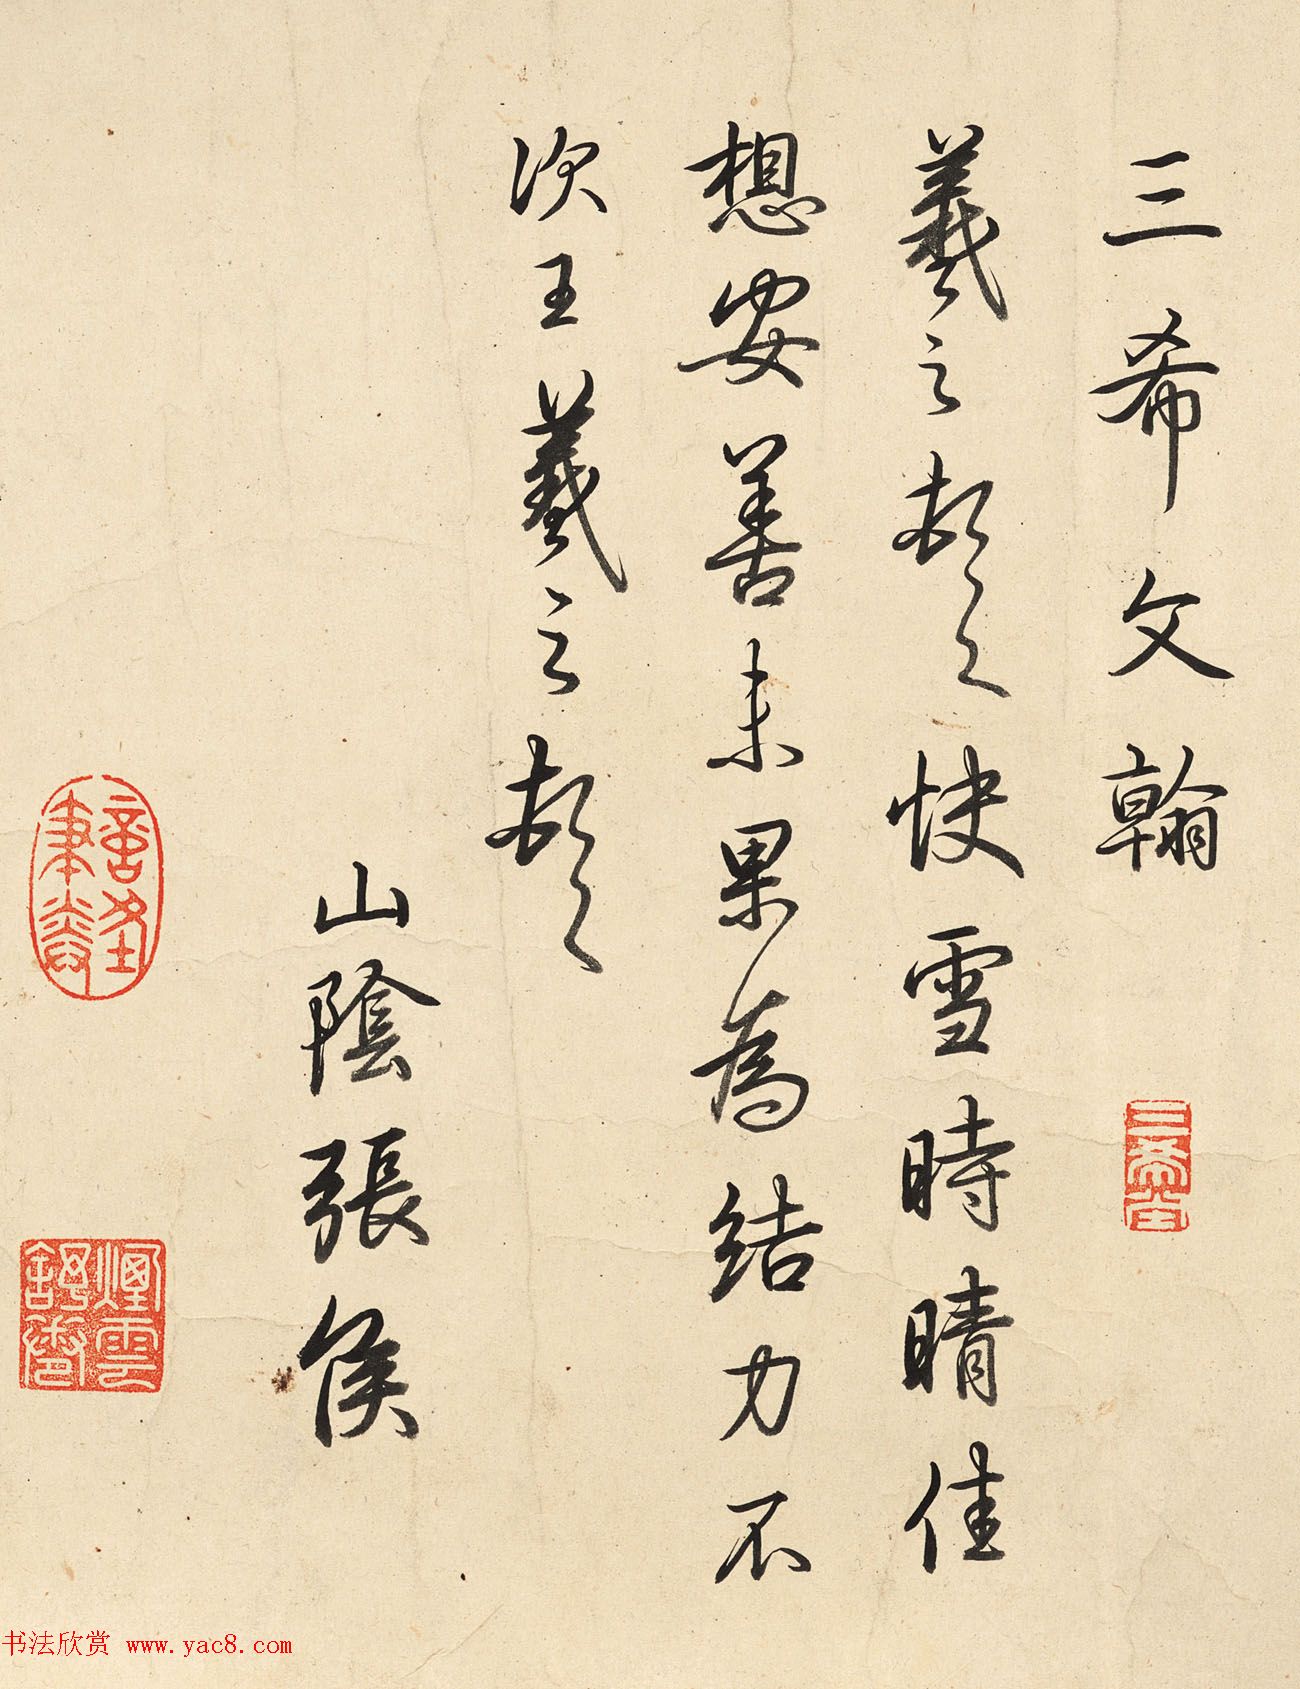 三希文翰
羲之頓首快雪時晴佳
想安善未果為結力不
次王羲之頓首
山陰張侯
三希堂
煙雲舒卷
书法欣赏 www.yac8.com